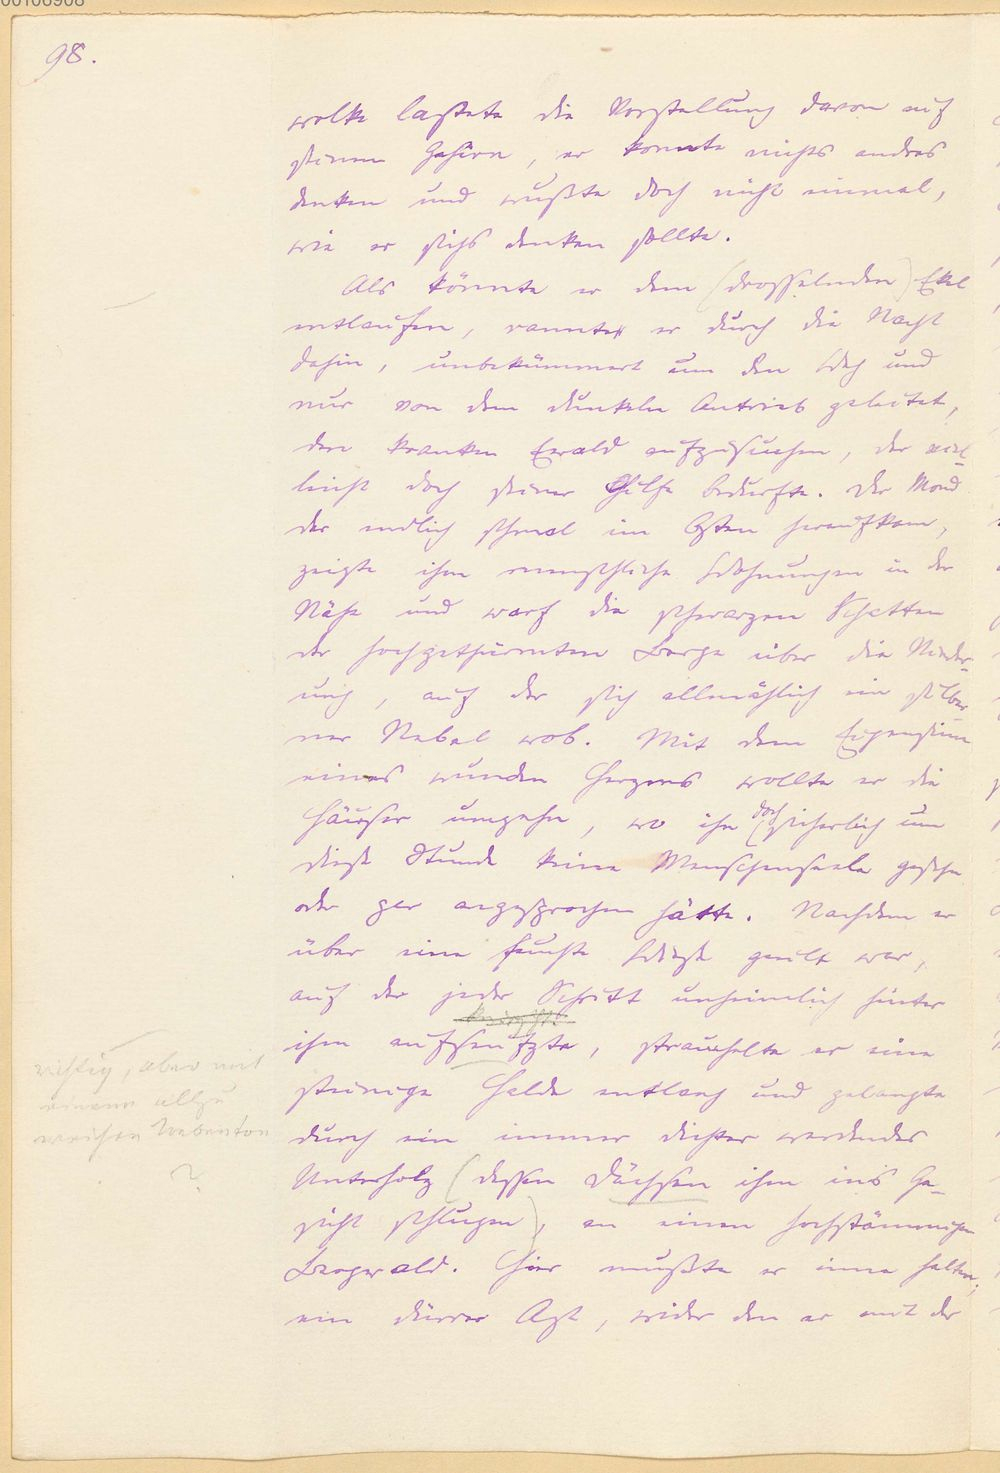 00106908
98.
wolke lastete die Vorstellung davon auf
seinem Gehirn, er konnte nichts andres
denken und wußte doch nicht einmal,
wie er sichs denken sollte.
Als könnte er dem (drosselnden) Ekel
entlaufen, rannte er durch die Nacht
dahin, unbekümmert um den Weg und
nur von dem dunkeln Antrieb geleitet,
den kranken Ewald aufzusuchen, der viel-
leicht doch seiner Hilfe bedurfte. Der Mond
der endlich schmal im Osten heraufkam,
zeigte ihm menschliche Wohnungen in der
Nähe und warf die schwarzen Schatten
der hochgethürmten Berge über die Nieder-
ung, auf der sich allmählich ein silber
ner Nebel wob. Mit dem
eines wunden Herzens wollte er die
Häuser umgehn, wo ihn doch sicherlich um
diese Stunde keine Menschenseele gesehn
oder gar angesprochen hätte. Nachdem er
über eine feuchte Wiese geeilt war,
auf der jeder Schritt unheimlich hinter
ihm aufseufzte, strauchelte er eine
steinige Halde entlang und gelangte
durch ein immer dichter werdendes
Unterholz (dessen Dächsen ihm ins Ge-
sicht schlugen), an einen hochstämmigen
Bergwald. Hier mußte er inne halten;
ein dürrer Ast, wider den er mit der
richtig, aber mit
einem allzu
weichen Nebenton
?